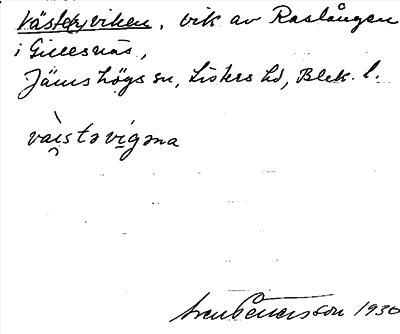 Västerviken, vik av Raslången
i Gillesnäs,
Jämshögs sn, Listers hd, Blek. l.
väistəvigəna
Sven Benson 1930